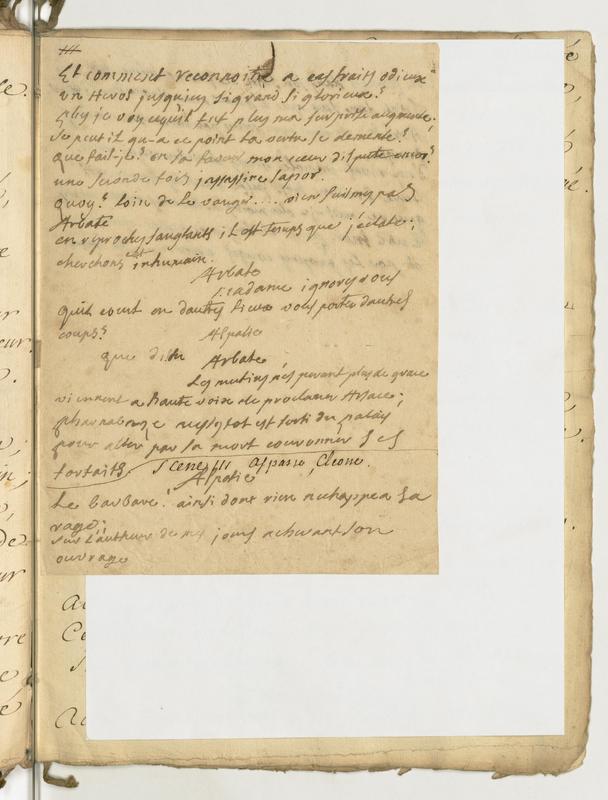 Et comment reconnoitre a ces traits odieux
un Heros jusquicy si grand si glorieux?
plus je voy ce quil fut plus ma surprise augmente.
se peut il qu-a ce point ta vertu se demente?
que fais-je? en sa faveur mon cœur dispute encor?
une seconde fois j'assassine
quoy? loin de le vanger... vien suis mes pas
Arbate
en reproches sanglants il est temps que j'éclate;
cherchons inhumain.
Arbate
madame ignorez vous
quil court en dautres lieux vous porter dautres
coups?
Aspasie
que dis tu
Arbate
Les mutins n'esperant plus de grace
viennent a haute voix de proclamer Arsace;
pharnabaze aussytot est sorti du palais
pour aller par sa mort couronner ses
forfaits.
Scene III Aspasie, Cleone.
Aspasie
Le barbare! ainsi donc rien n'echappe a sa
rage;
sur l'autheur de mes jours achevant son
ouvrage